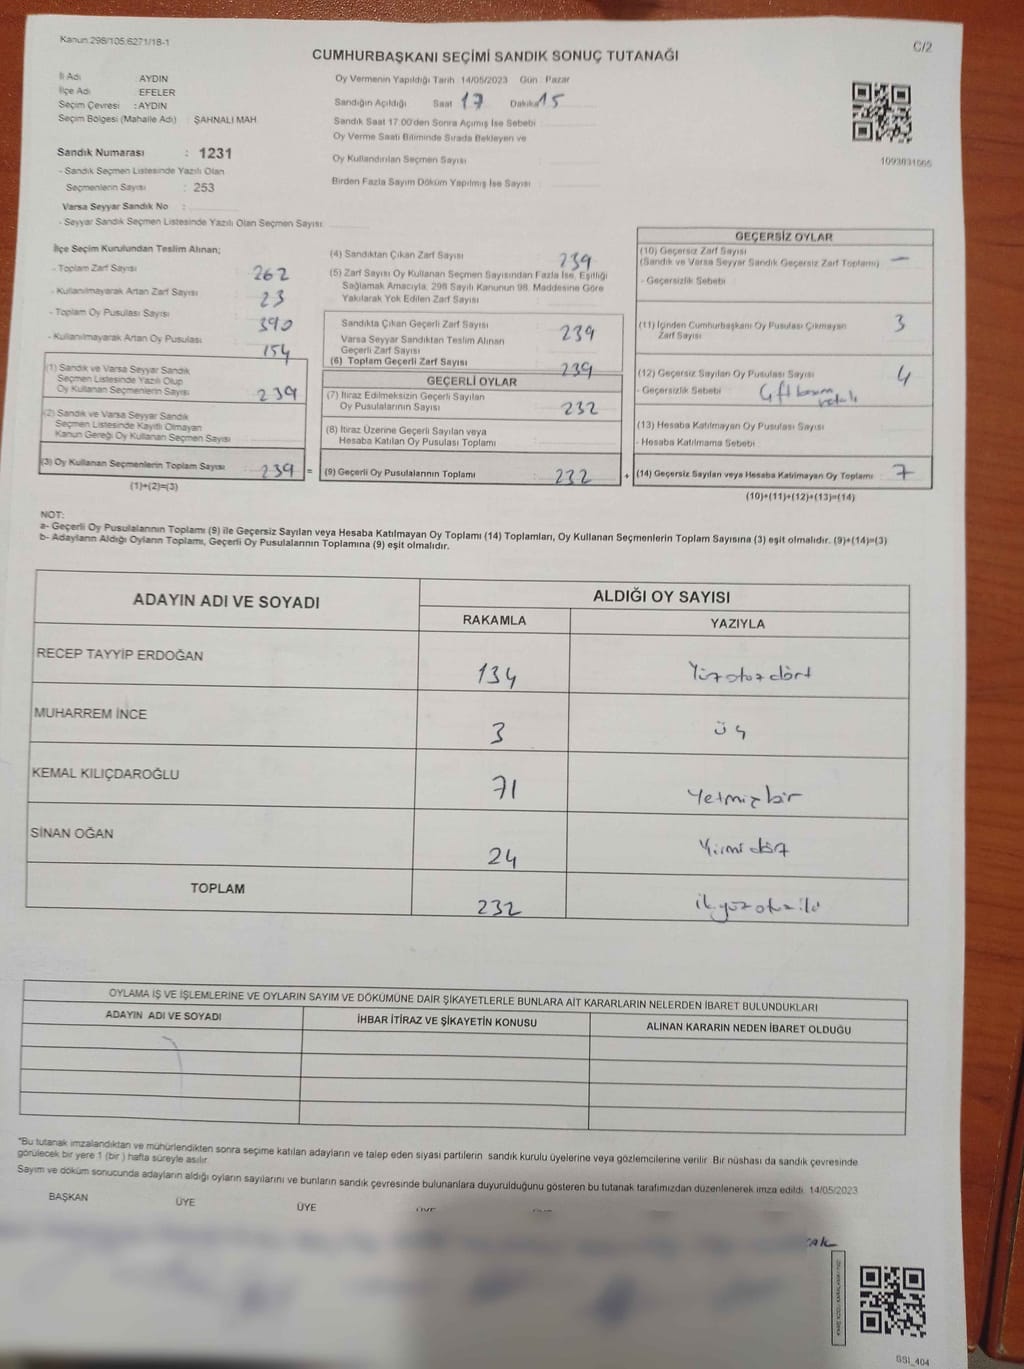 Kanun:298/105;6271/18-1
C/2
CUMHURBAŞKANI SEÇİMİ SANDIK SONUÇ TUTANAĞI
İl Adı : AYDIN
İlçe Adı : EFELER
Seçim Çevresi : AYDIN
Seçim Bölgesi (Mahalle Adı) : ŞAHNALI MAH
Sandık Numarası : 1231
- Sandık Seçmen Listesinde Yazılı Olan
Seçmenlerin Sayısı : 253
Varsa Seyyar Sandık No :
- Seyyar Sandık Seçmen Listesinde Yazılı Olan Seçmen Sayısı:
Oy Vermenin Yapıldığı Tarih : 14/05/2023 Gün : Pazar
Sandığın Açıldığı Saat 17 Dakika 15
Sandık Saat 17.00'den Sonra Açımış İse Sebebi :
Oy Verme Saati Bitiminde Sırada Bekleyen ve
Oy Kullandırılan Seçmen Sayısı
Birden Fazla Sayım Döküm Yapılmış İse Sayısı
İlçe Seçim Kurulundan Teslim Alınan;
- Toplam Zarf Sayısı : 262
- Kullanılmayarak Artan Zarf Sayısı : 23
- Toplam Oy Pusulası Sayısı : 390
- Kullanılmayarak Artan Oy Pusulası : 154
(1) Sandık ve Varsa Seyyar Sandık
Seçmen Listesinde Yazılı Olup
Oy Kullanan Seçmenlerin Sayısı : 239
(2) Sandık ve Varsa Seyyar Sandık
Seçmen Listesinde Kayıtlı Olmayan
Kanun Gereği Oy Kullanan Seçmen Sayısı :
(3) Oy Kullanan Seçmenlerin Toplam Sayısı : 239 =
(1)+(2)=(3)
(4) Sandıktan Çıkan Zarf Sayısı : 239
(5) Zarf Sayısı Oy Kullanan Seçmen Sayısından Fazla İse, Eşitliği
Sağlamak Amacıyla, 298 Sayılı Kanunun 98. Maddesine Göre
Yakılarak Yok Edilen Zarf Sayısı :
Sandıkta Çıkan Geçerli Zarf Sayısı : 239
Varsa Seyyar Sandıktan Teslim Alınan
Geçerli Zarf Sayısı
(6) Toplam Geçerli Zarf Sayısı : 239
GEÇERLİ OYLAR
(7) İtiraz Edilmeksizin Geçerli Sayılan
Oy Pusulalarının Sayısı : 232
(8) İtiraz Üzerine Geçerli Sayılan veya
Hesaba Katılan Oy Pusulası Toplamı
(9) Geçerli Oy Pusulalarının Toplamı : 232 +
GEÇERSİZ OYLAR
(10) Geçersiz Zarf Sayısı
(Sandık ve Varsa Seyyar Sandık Geçersiz Zarf Toplamı) : —
- Geçersizlik Sebebi :
(11) İçinden Cumhurbaşkanı Oy Pusulası Çıkmayan
Zarf Sayısı : 3
(12) Geçersiz Sayılan Oy Pusulası Sayısı : 4
- Geçersizlik Sebebi : Çift basım
(13) Hesaba Katılmayan Oy Pusulası Sayısı :
- Hesaba Katılmama Sebebi :
(14) Geçersiz Sayılan veya Hesaba Katılmayan Oy Toplamı : 7
(10)+(11)+(12)+(13)=(14)
NOT:
a- Geçerli Oy Pusulalarının Toplamı (9) ile Geçersiz Sayılan veya Hesaba Katılmayan Oy Toplamı (14) Toplamları, Oy Kullanan Seçmenlerin Toplam Sayısına (3) eşit olmalıdır. (9)+(14)=(3)
b- Adayların Aldığı Oyların Toplamı, Geçerli Oy Pusulalarının Toplamına (9) eşit olmalıdır.
ADAYIN ADI VE SOYADI
ALDIĞI OY SAYISI
RAKAMLA YAZIYLA
RECEP TAYYİP ERDOĞAN 134 Yüzotuzdört
MUHARREM İNCE 3 üç
KEMAL KILIÇDAROĞLU 71 Yetmişbir
SİNAN OĞAN 24 Yirmi dört
TOPLAM 232 ikiyüzotuziki
OYLAMA İŞ VE İŞLEMLERİNE VE OYLARIN SAYIM VE DÖKÜMÜNE DAİR ŞİKAYETLERLE BUNLARA AİT KARARLARIN NELERDEN İBARET BULUNDUKLARI
ADAYIN ADI VE SOYADI İHBAR İTİRAZ VE ŞİKAYETİN KONUSU ALINAN KARARIN NEDEN İBARET OLDUĞU
*Bu tutanak imzalandıktan ve mühürlendikten sonra seçime katılan adayların ve talep eden siyasi partilerin sandık kurulu üyelerine veya gözlemcilerine verilir. Bir nüshası da sandık çevresinde
görülecek bir yere 1 (bir ) hafta süreyle asılır.
Sayım ve döküm sonucunda adayların aldığı oyların sayılarını ve bunların sandık çevresinde bulunanlara duyurulduğunu gösteren bu tutanak tarafımızdan düzenlenerek imza edildi. 14/05/2023
BAŞKAN ÜYE ÜYE
SSI_404